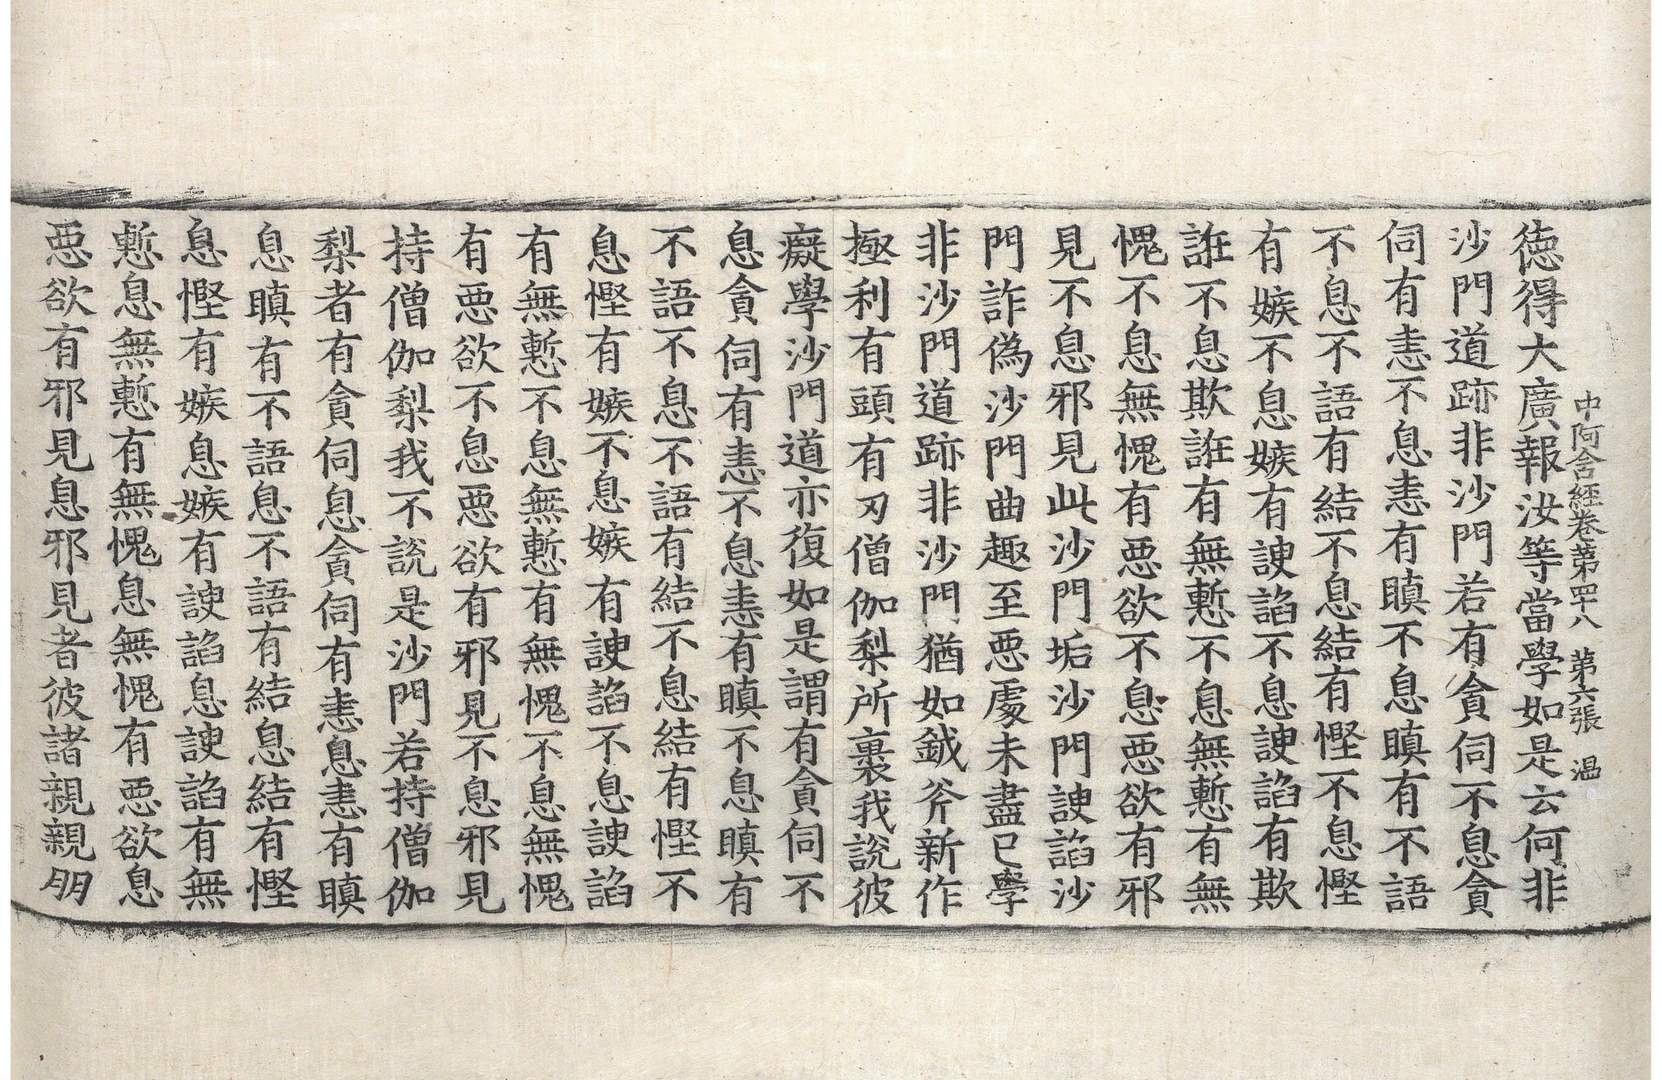 中阿含經卷第四十八 第六張 温
徳得大廣報汝等當學如是云何非
沙門道跡非沙門若有貪伺不息貪
伺有恚不息恚有瞋不息瞋有不語
不息不語有結不息結有慳不息慳
有嫉不息嫉有諛諂不息諛諂有欺
誑不息欺誑有無慙不息無慙有無
愧不息無愧有惡欲不息惡欲有邪
見不息邪見此沙門垢沙門諛諂沙
門詐偽沙門曲趣至惡處未盡已學
非沙門道跡非沙門猶如鉞斧新作
極利有頭有刃僧伽梨所裹我說彼
癡學沙門道亦復如是謂有貪伺不
息貪伺有恚不息恚有瞋不息瞋有
不語不息不語有結不息結有慳不
息慳有嫉不息嫉有諛諂不息諛諂
有無慙不息無慙有無愧不息無愧
有惡欲不息惡欲有邪見不息邪見
持僧伽梨我不說是沙門若持僧伽
梨者有貪伺息貪伺有恚息恚有瞋
息瞋有不語息不語有結息結有慳
息慳有嫉息嫉有諛諂息諛諂有無
慙息無慙有無愧息無愧有惡欲息
惡欲有邪見息邪見者彼諸親親朋